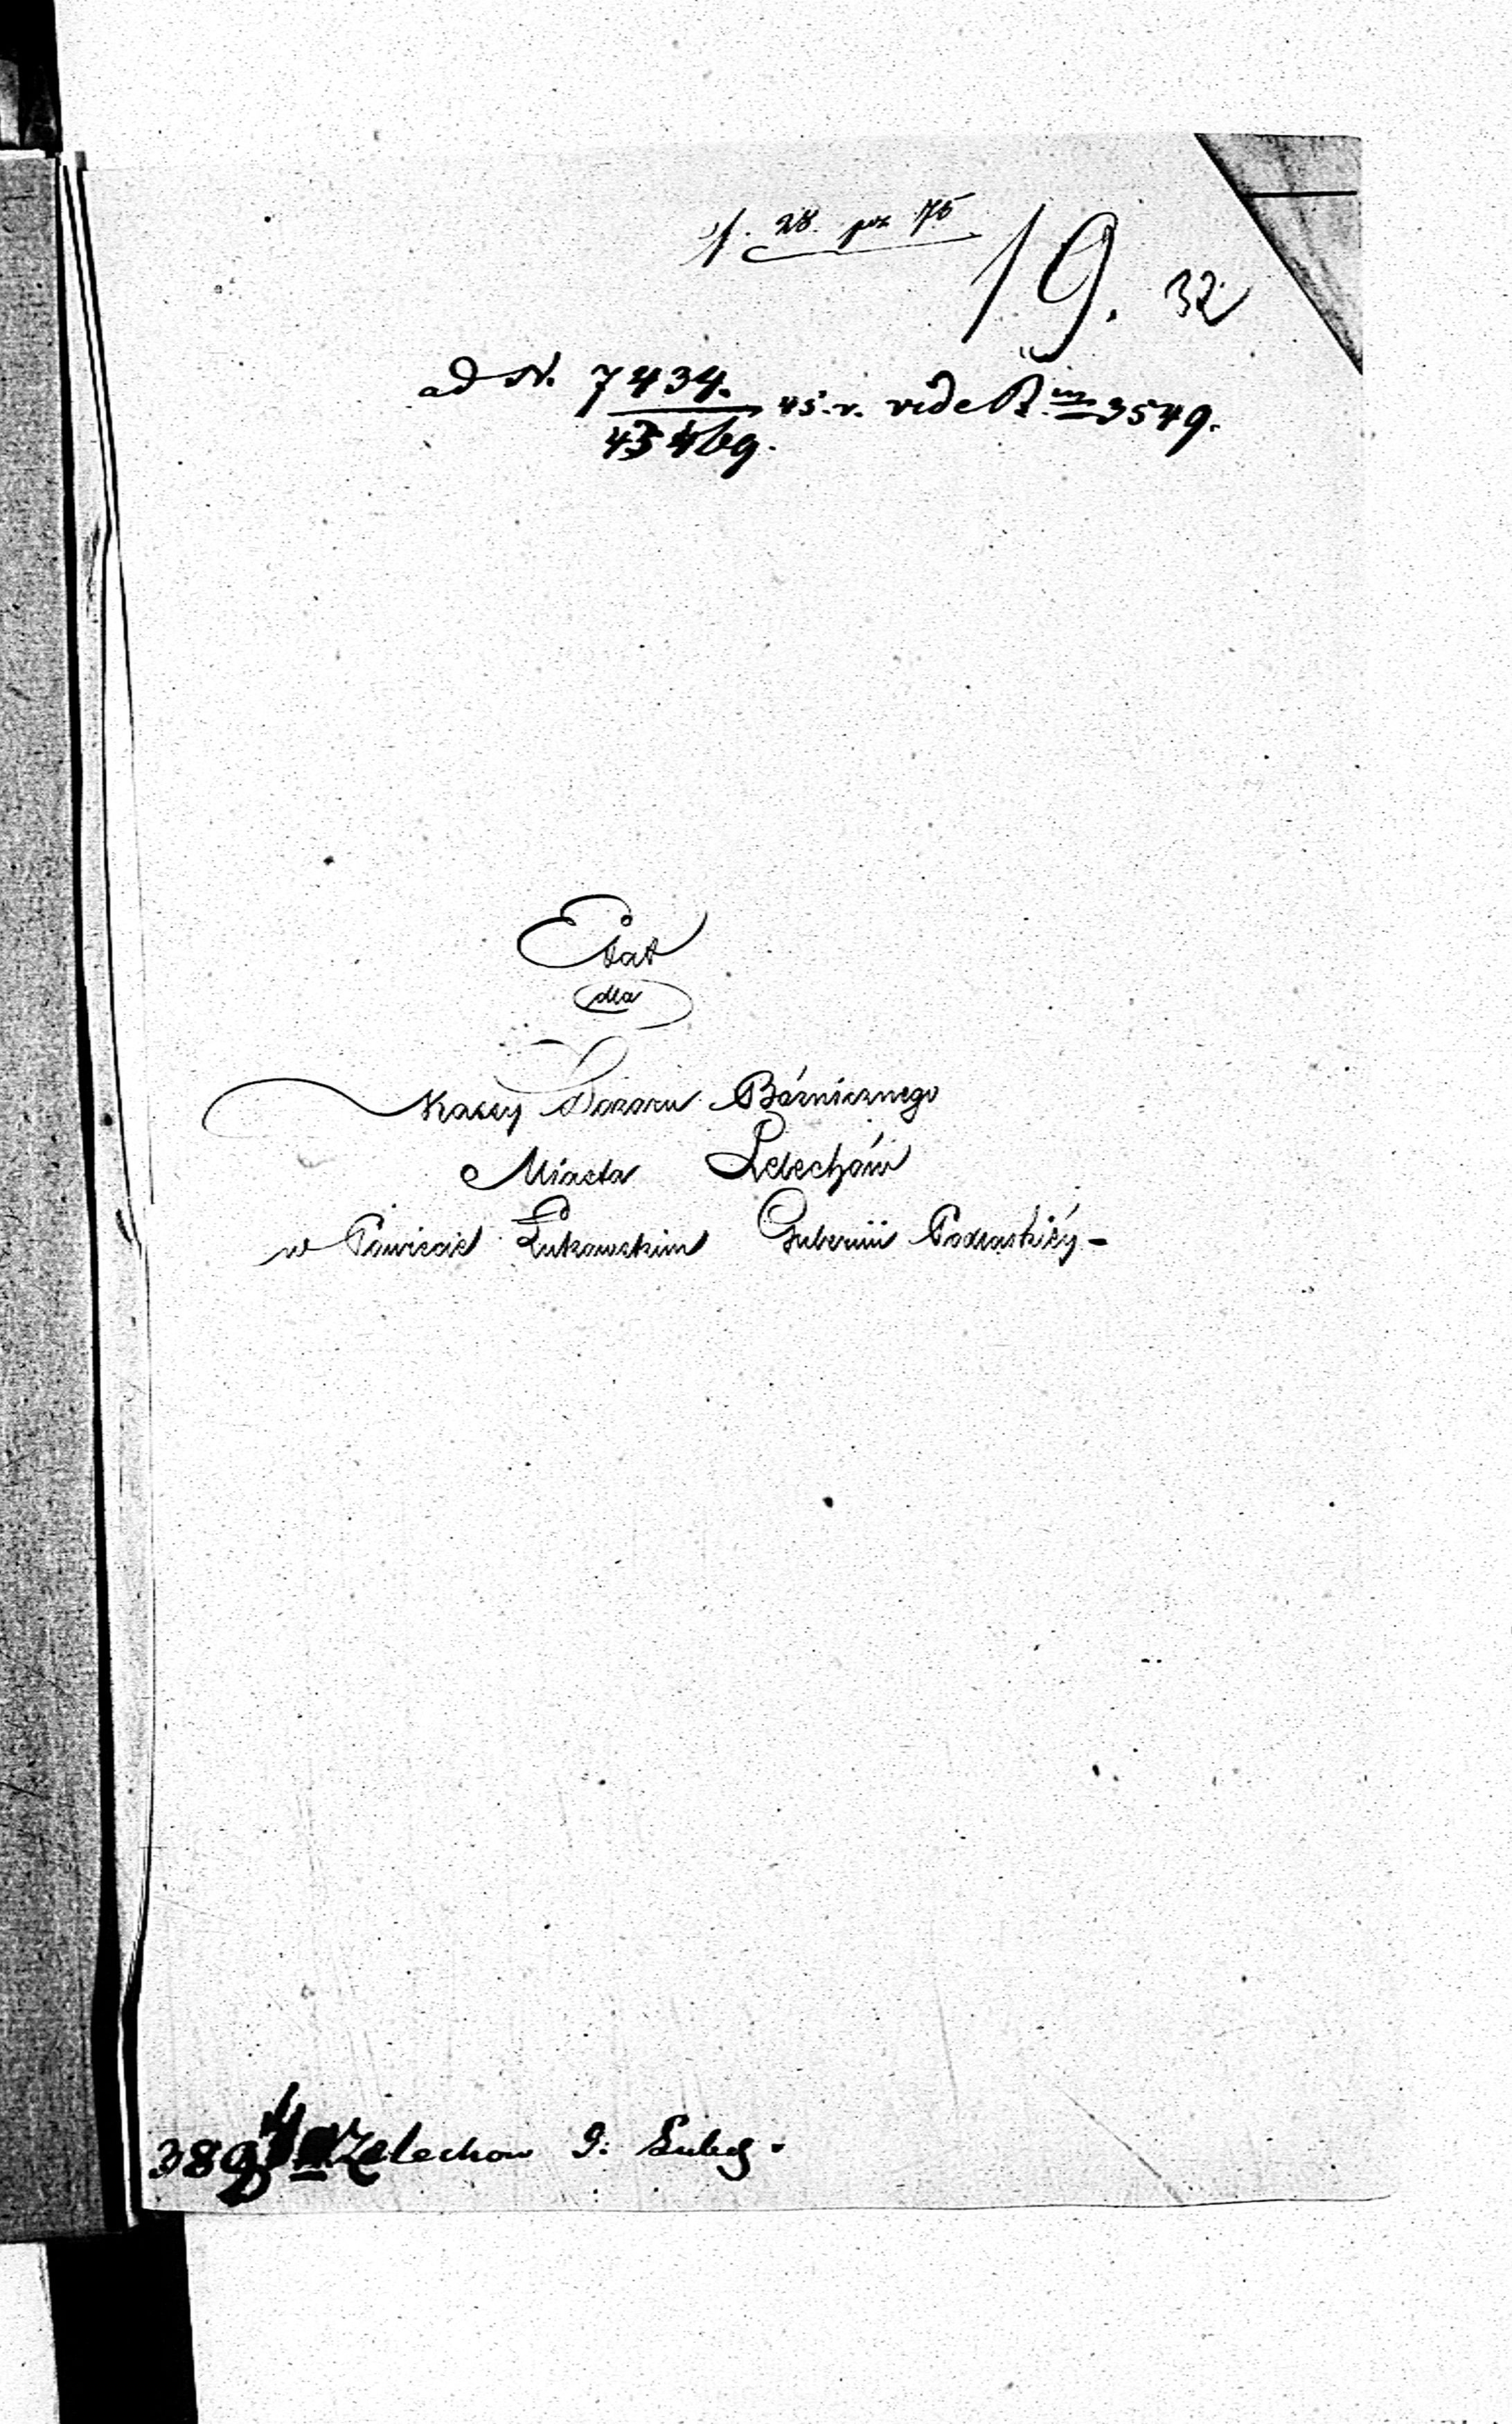 28. poz 75
19. 32
ad N. 7434. 45. r. vide R. 3549.
Etat
dla
Kassy Dozoru Bóżnicznego
Miasta Żelechów
w Powiecie Łukowskim Gubernii Podlaskiéy -
Zelechow G: Lubel.